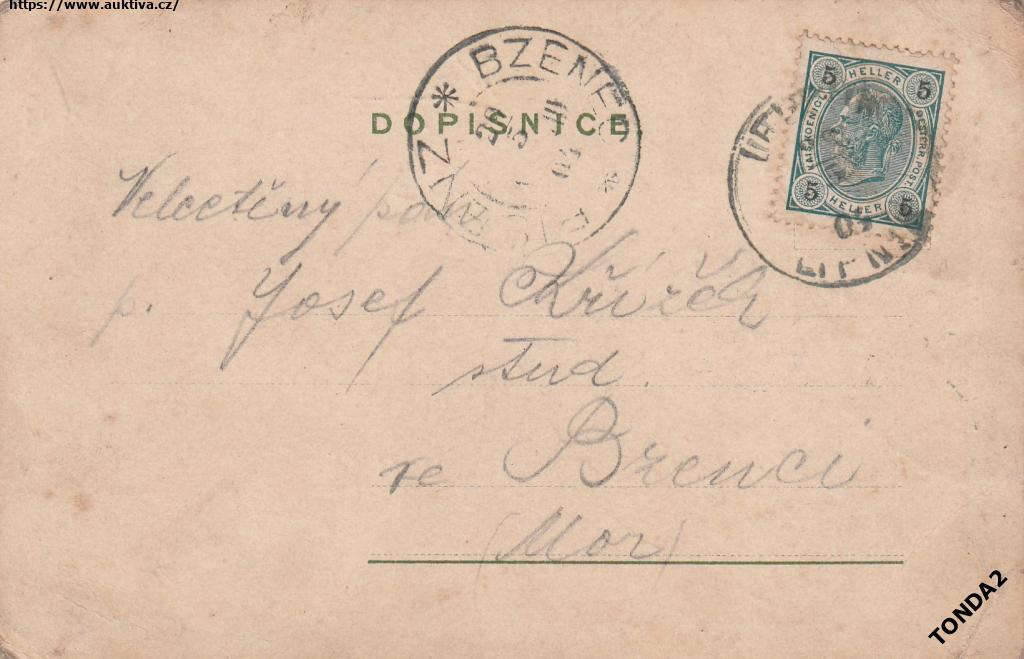 https://www.auktiva.cz/
BZENEC * BZENZ *
DOPISNICE.
5 HELLER 5
KAIS.KOENIGL. OESTERR.POST.
5 HELLER 5
Velectěný pán
p. Josef Křížek
stud
ve Bzenci
(Mor)
TONDA2